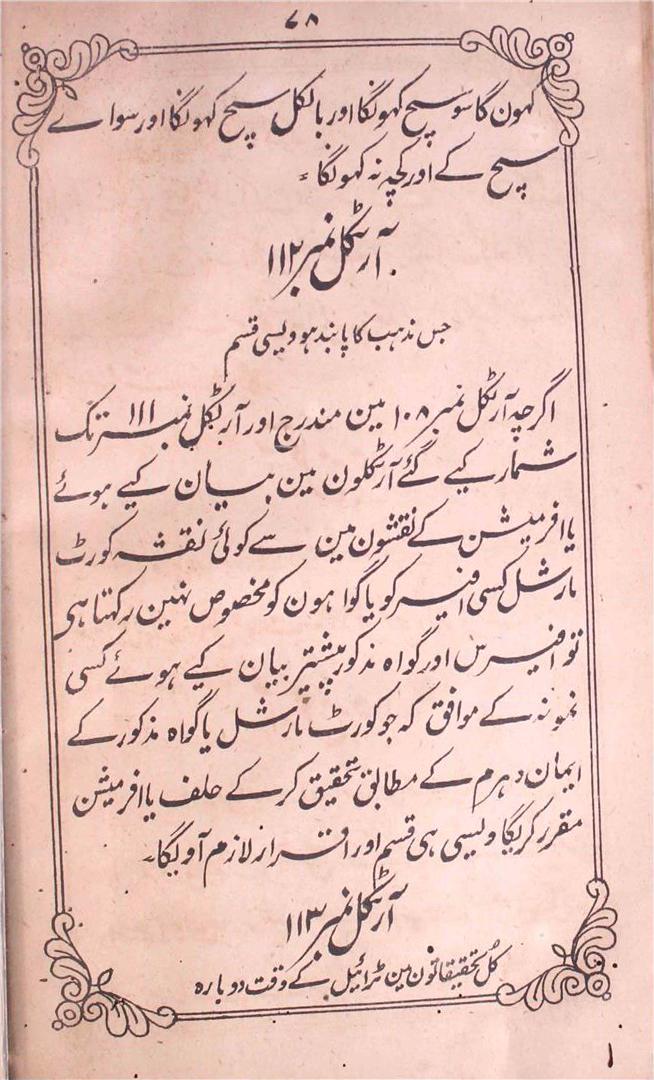 ۷۸
کہون گا سو سچ کہونگا اور بالکل سچ کہونگا اور سواے
سچ کے اور کچہ نہ کہونگا ۔
آرٹکل نمبر ۱۱۲
جس مذہب کا پابند ہو ویسی قسم
اگرچہ آرٹکل نمبر ۱۰۸ مین مندرج اور آرٹکل نمبر ۱۱۱ تک
شمار کیے گئے آرٹکلون مین بیان کیے ہوئے
یا افرمیشن کے نقشون مین سے کوئی نقشہ کورٹ
مارشل کسی افیسر کو یا گواہون کو مخصوص نہین رکہتا ہی
تو افیسرس اور گواہ مذکور پیشتر بیان کیے ہوئے کسی
نمونہ کے موافق کہ جو کورٹ مارشل یا گواہ مذکور کے
ایمان دہرم کے مطابق تحقیق کر کے حلف یا افرمیشن
مقرر کریگا ویسی ہی قسم اور اقرار لازم آویگا۔
آرٹکل نمبر ۱۱۳
کل تحقیقاتون مین ٹرائیل کے وقت دوبارہ